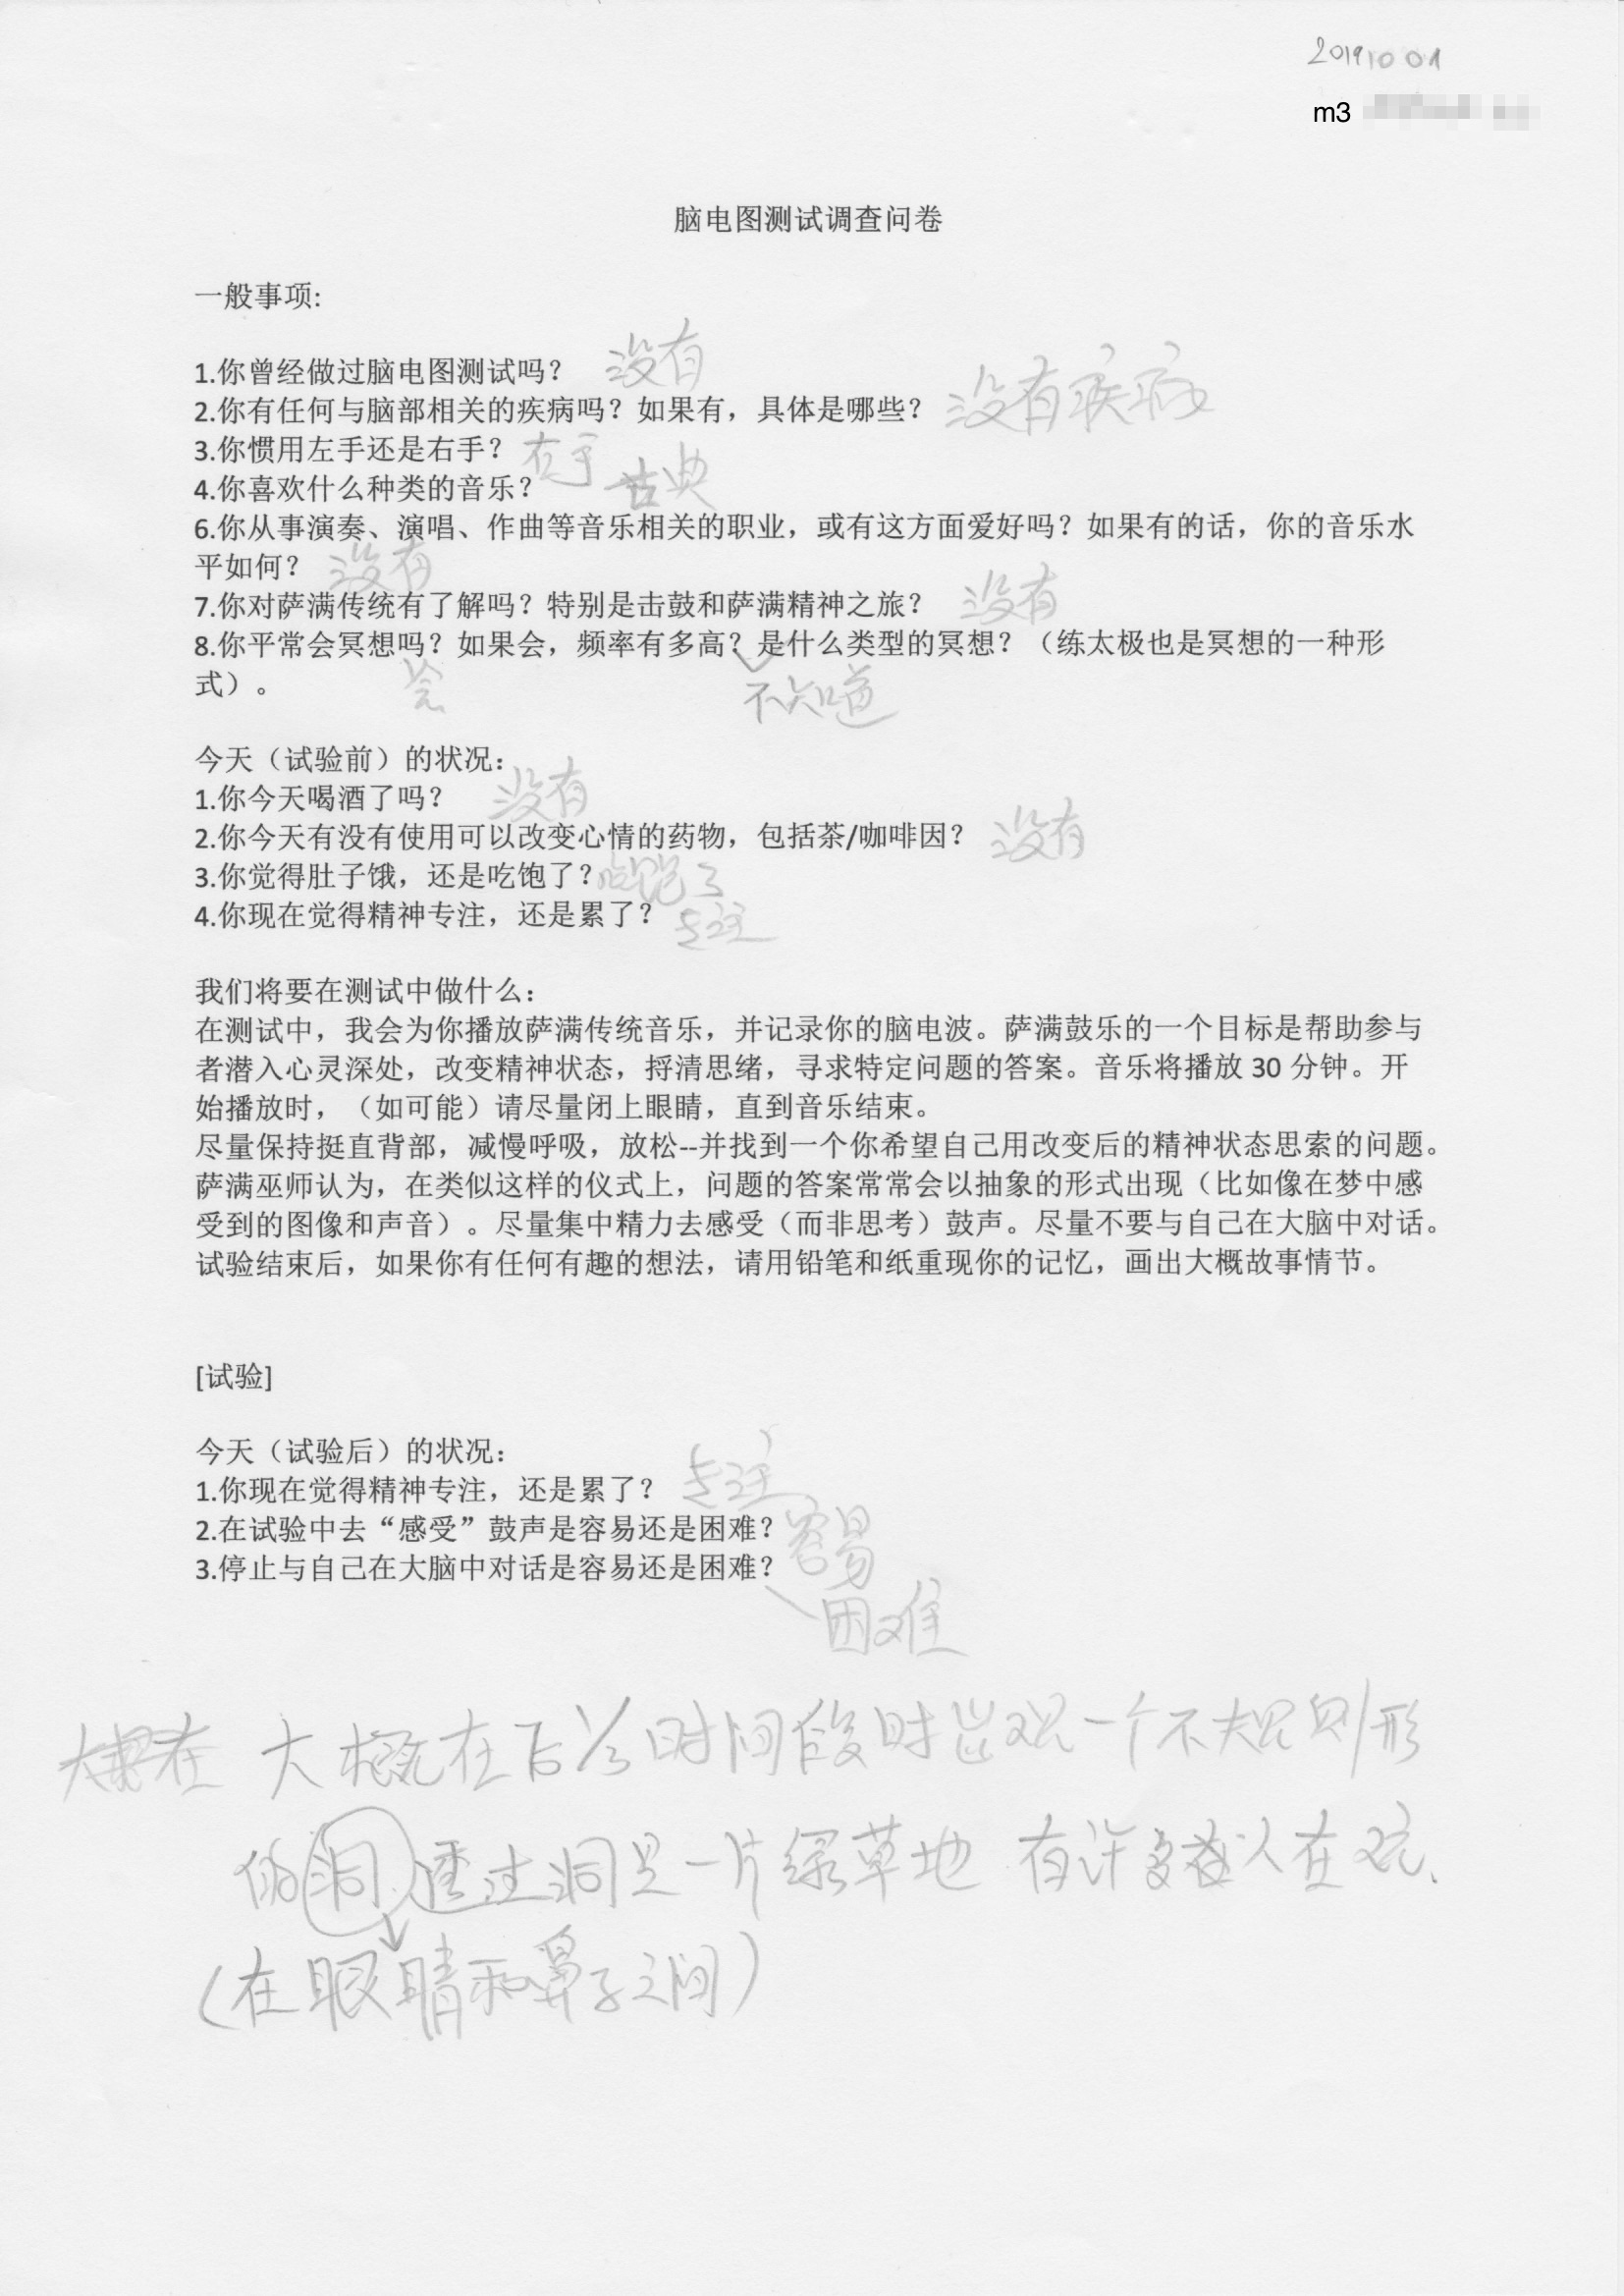 20191001
m3
脑电图测试调查问卷
一般事项:
1.你曾经做过脑电图测试吗？ 没有
2.你有任何与脑部相关的疾病吗？如果有，具体是哪些？ 没有疾病
3.你惯用左手还是右手？ 右手
4.你喜欢什么种类的音乐？ 古典
6.你从事演奏、演唱、作曲等音乐相关的职业，或有这方面爱好吗？如果有的话，你的音乐水
平如何？ 没有
7.你对萨满传统有了解吗？特别是击鼓和萨满精神之旅？ 没有
8.你平常会冥想吗？如果会，频率有多高？是什么类型的冥想？（练太极也是冥想的一种形
式）。 会 不知道
今天（试验前）的状况：
1.你今天喝酒了吗？ 没有
2.你今天有没有使用可以改变心情的药物，包括茶/咖啡因？ 没有
3.你觉得肚子饿，还是吃饱了？ 吃饱了
4.你现在觉得精神专注，还是累了？ 专注
我们将要在测试中做什么：
在测试中，我会为你播放萨满传统音乐，并记录你的脑电波。萨满鼓乐的一个目标是帮助参与
者潜入心灵深处，改变精神状态，捋清思绪，寻求特定问题的答案。音乐将播放 30 分钟。开
始播放时，（如可能）请尽量闭上眼睛，直到音乐结束。
尽量保持挺直背部，减慢呼吸，放松--并找到一个你希望自己用改变后的精神状态思索的问题。
萨满巫师认为，在类似这样的仪式上，问题的答案常常会以抽象的形式出现（比如像在梦中感
受到的图像和声音）。尽量集中精力去感受（而非思考）鼓声。尽量不要与自己在大脑中对话。
试验结束后，如果你有任何有趣的想法，请用铅笔和纸重现你的记忆，画出大概故事情节。
[试验]
今天（试验后）的状况：
1.你现在觉得精神专注，还是累了？ 专注
2.在试验中去“感受”鼓声是容易还是困难？ 容易
3.停止与自己在大脑中对话是容易还是困难？
困难
大概在后 时间段时出现一个不规则形
的洞 透过洞是一片绿草地 有许多 人在玩、
（在眼睛和鼻子之间）